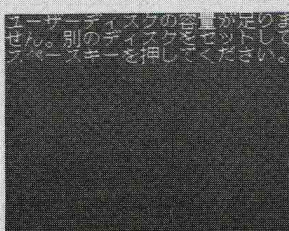 ユーザーディスクの容量が足りま
せん。別のディスクをセットして
スペースキーを押してください。